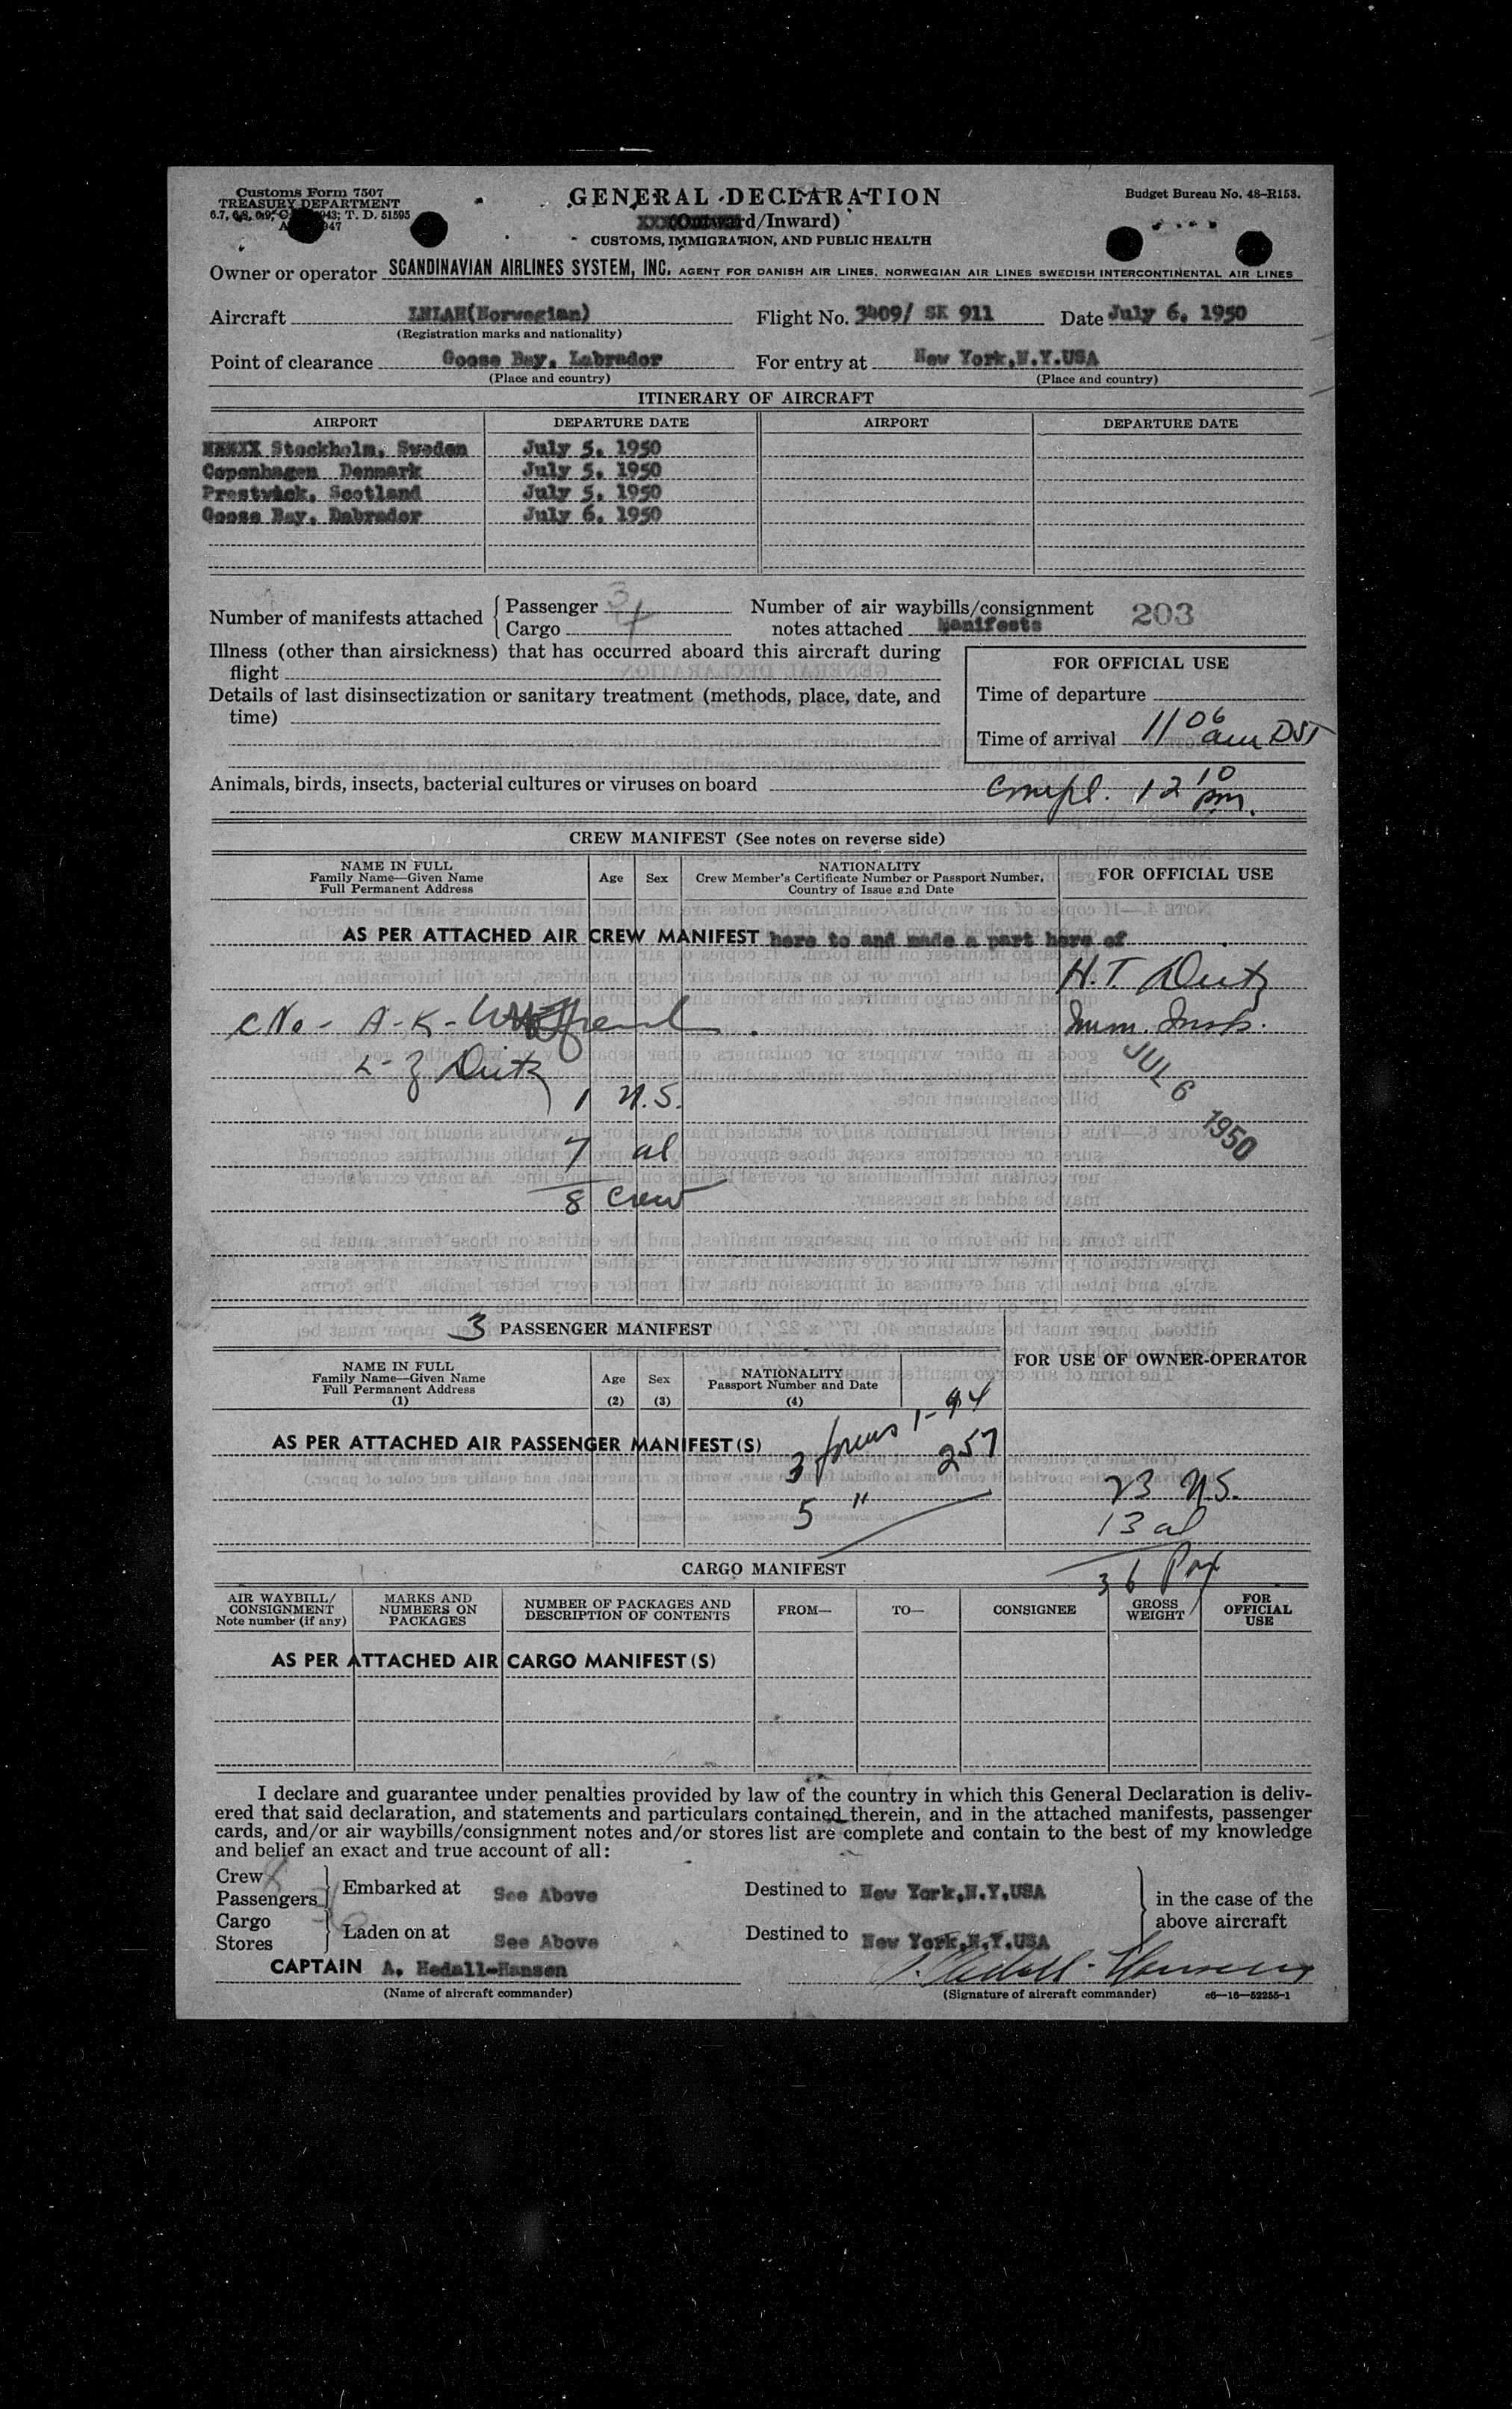 Customs Form 7507
TREASURY DEPARTMENT
GENERAL DECLARATION
(Outward/Inward)
CUSTOMS, IMMIGRATION, AND PUBLIC HEALTH
Budget Bureau No. 48-R153.
Owner or operator SCANDINAVIAN AIRLINES SYSTEM, INC. AGENT FOR DANISH AIR LINES. NORWEGIAN AIR LINES SWEDISH INTERCONTINENTAL AIR LINES
Aircraft LNLAH(Norwegian) Flight No. 3409/ SK 911 Date July 6. 1950
(Registration marks and nationality)
Point of clearance Goose Bay. Labrador For entry at New York.N.Y.USA
(Place and country) (Place and country)
ITINERARY OF AIRCRAFT
AIRPORT DEPARTURE DATE AIRPORT DEPARTURE DATE
Stockholm. Sweden July 5. 1950
Copenhagen Denmark July 5. 1950
Prestwick. Scotland July 5. 1950
Goose Bay. Labrador July 6. 1950
Number of manifests attached { Passenger Cargo
Number of air waybills/consignment notes attached Manifests 203
Illness (other than airsickness) that has occurred aboard this aircraft during flight
Details of last disinsectization or sanitary treatment (methods, place, date, and time)
FOR OFFICIAL USE
Time of departure
Time of arrival 11 06 am DST
Animals, birds, insects, bacterial cultures or viruses on board
compl. 12 10 pm.
CREW MANIFEST (See notes on reverse side)
NAME IN FULL
Family Name—Given Name
Full Permanent Address
Age Sex
NATIONALITY
Crew Member's Certificate Number or Passport Number,
Country of Issue and Date
FOR OFFICIAL USE
AS PER ATTACHED AIR CREW MANIFEST here to and made a part here of
H.T. Dietz
Imm. Insp.
JUL 6 1950
Dietz
1 U.S.
7 al
8 crew
3 PASSENGER MANIFEST
NAME IN FULL
Family Name—Given Name
Full Permanent Address
(1)
Age
(2)
Sex
(3)
NATIONALITY
Passport Number and Date
(4)
FOR USE OF OWNER-OPERATOR
AS PER ATTACHED AIR PASSENGER MANIFEST(S)
3 forms I-94
5 " 257
23 U.S.
13 al
36 Pax
CARGO MANIFEST
AIR WAYBILL/
CONSIGNMENT
Note number (if any)
MARKS AND
NUMBERS ON
PACKAGES
NUMBER OF PACKAGES AND
DESCRIPTION OF CONTENTS
FROM— TO— CONSIGNEE
GROSS
WEIGHT
FOR
OFFICIAL
USE
AS PER ATTACHED AIR CARGO MANIFEST(S)
I declare and guarantee under penalties provided by law of the country in which this General Declaration is deliv-
ered that said declaration, and statements and particulars contained therein, and in the attached manifests, passenger
cards, and/or air waybills/consignment notes and/or stores list are complete and contain to the best of my knowledge
and belief an exact and true account of all:
Crew
Passengers } Embarked at See Above Destined to New York.N.Y.USA
Cargo
Stores } Laden on at See Above Destined to New York.N.Y.USA
} in the case of the
above aircraft
CAPTAIN A. Hedall-Hansen
(Name of aircraft commander) (Signature of aircraft commander) c6—16—52255-1